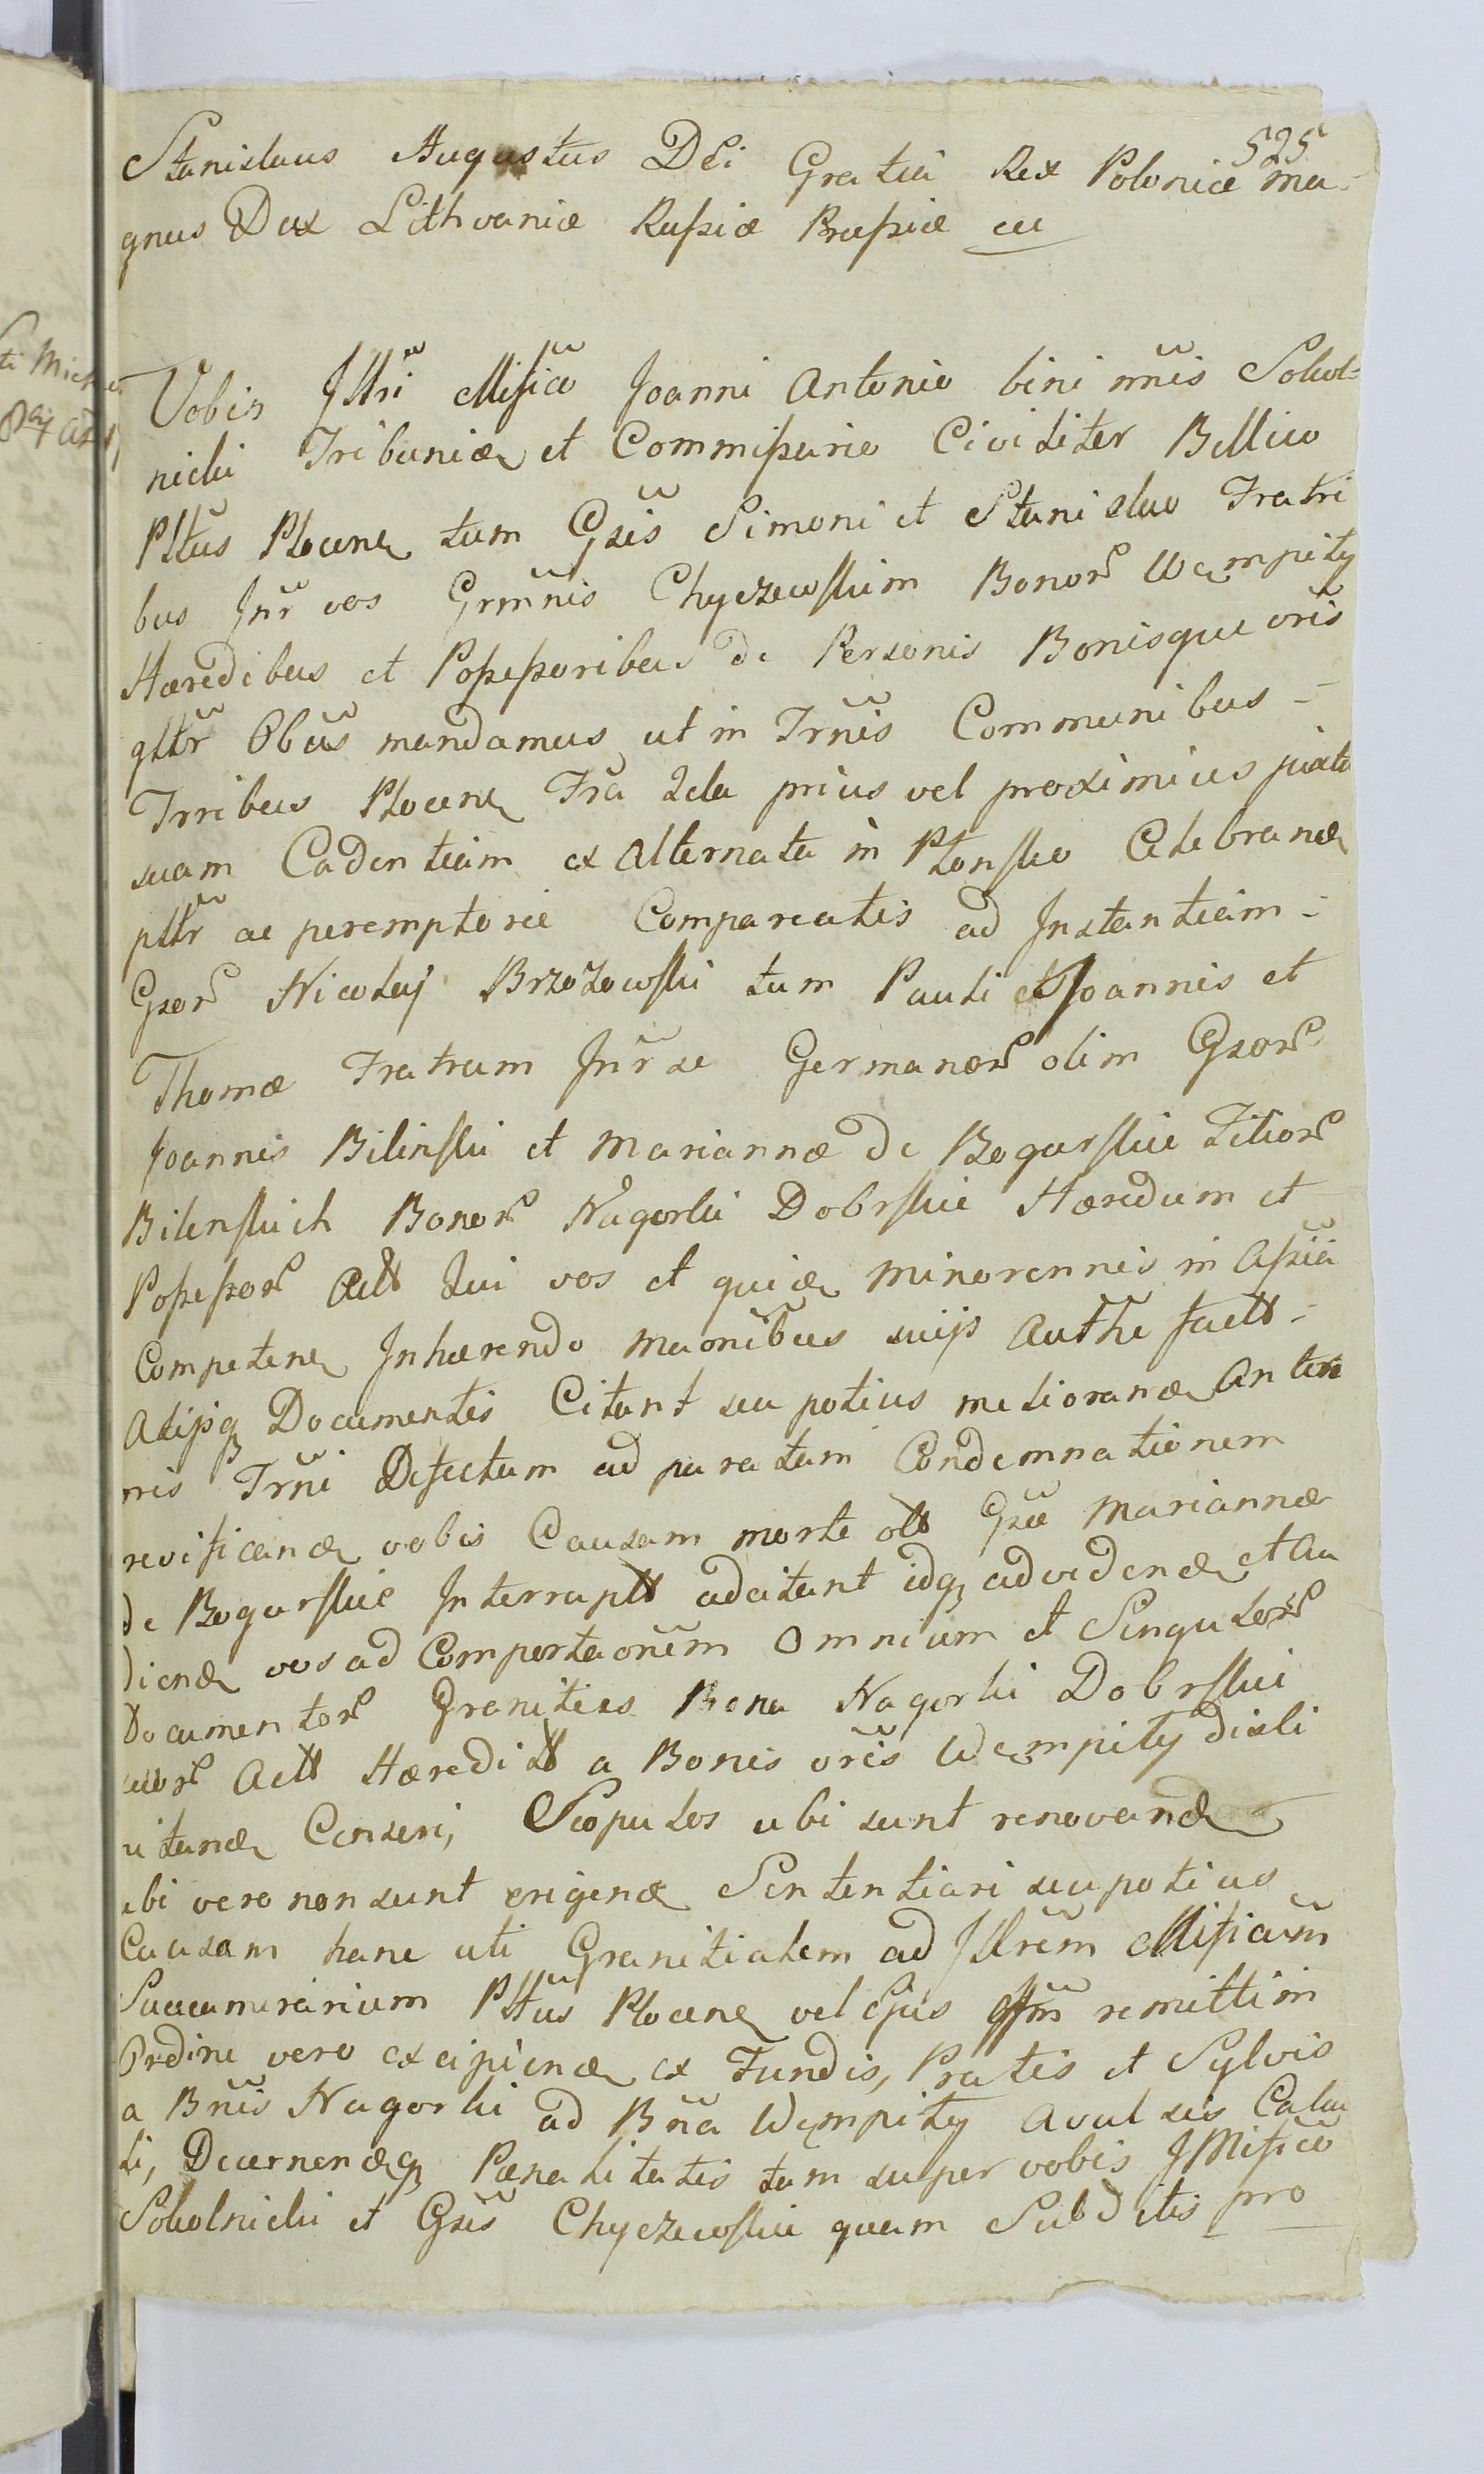 525
Stanislaus Augustus Dei Gratia Rex Poloniæ Ma-
gnus Dux Lithvaniæ Russiæ Prussiæ etc
Vobis Jllri Mĩfico Joanni Antonio bini nñis Sokol-
nicki Tribuniæ et Commissario Civiliter Bellico
Plttus Plocen tum Gsis Simoni et Stanislao Fratri
bus Jnr vos Grmnis Chyczewskim Bonor Wempiły
Hæredibus et Possessoribus de Personis Bonisque vris
gltr Obus mandamus ut in Trnis Communibus -
Trribus Plocen Fra 2da prius vel proximius juxta
suam Cadentiam ex Alternata in Płonsko Celebrand
pltr ac peremptorie Compareatis ad Jnstantiam -
Gsor Nicolaj Brzozowski tum Pauli et Joannis et
Thomæ Fratrum Jnr se Germanor olim Gsor
Joannis Bilinski et Mariannæ de Bogurskie Filior
Bilinskich Bonor Nagorki Dobrskie Hæredum et
Possessor Actt Qui vos et quid minorennis in Assia
Competen Jnhærendo Maonibus suis Authe factt -
Aliisq Documentis Citant seu potius meliorand Anterio
ris Trni Defectum ad paratam Condemnationem
revificand vobis Causam morte ott Gsæ Mariannæ
de Bogurskie Jnterruptt adcitant idq ad videnď et Au
diend vos ad Comportaonem Omnium et Singulor
Documentor Granities Bona Nagorki Dobrskie
suor Actt Hæreditt a Bonis vris Wempiły disli
mitand Censeri, Scopulos ubi sunt renovand
ubi vero non sunt erigend Sententiari seu potius
Causam hanc uti Granitialem ad Jllrem Mificum
Succamerarium Plttus Plocen vel Ejus remittim
Ordine vero excipiend ex Fundis, Pratis et Sylvis
a Bnis Nagorki ad Bna Wempiły Avulsis Calcu
li, Decernendq Pænalitatis tam super vobis JMifico
Sokolnicki et Gsis Chyczewskie quam Subditis pro